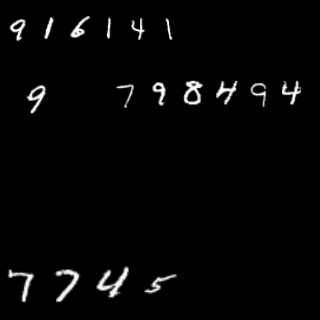 916141
9 798494
7745